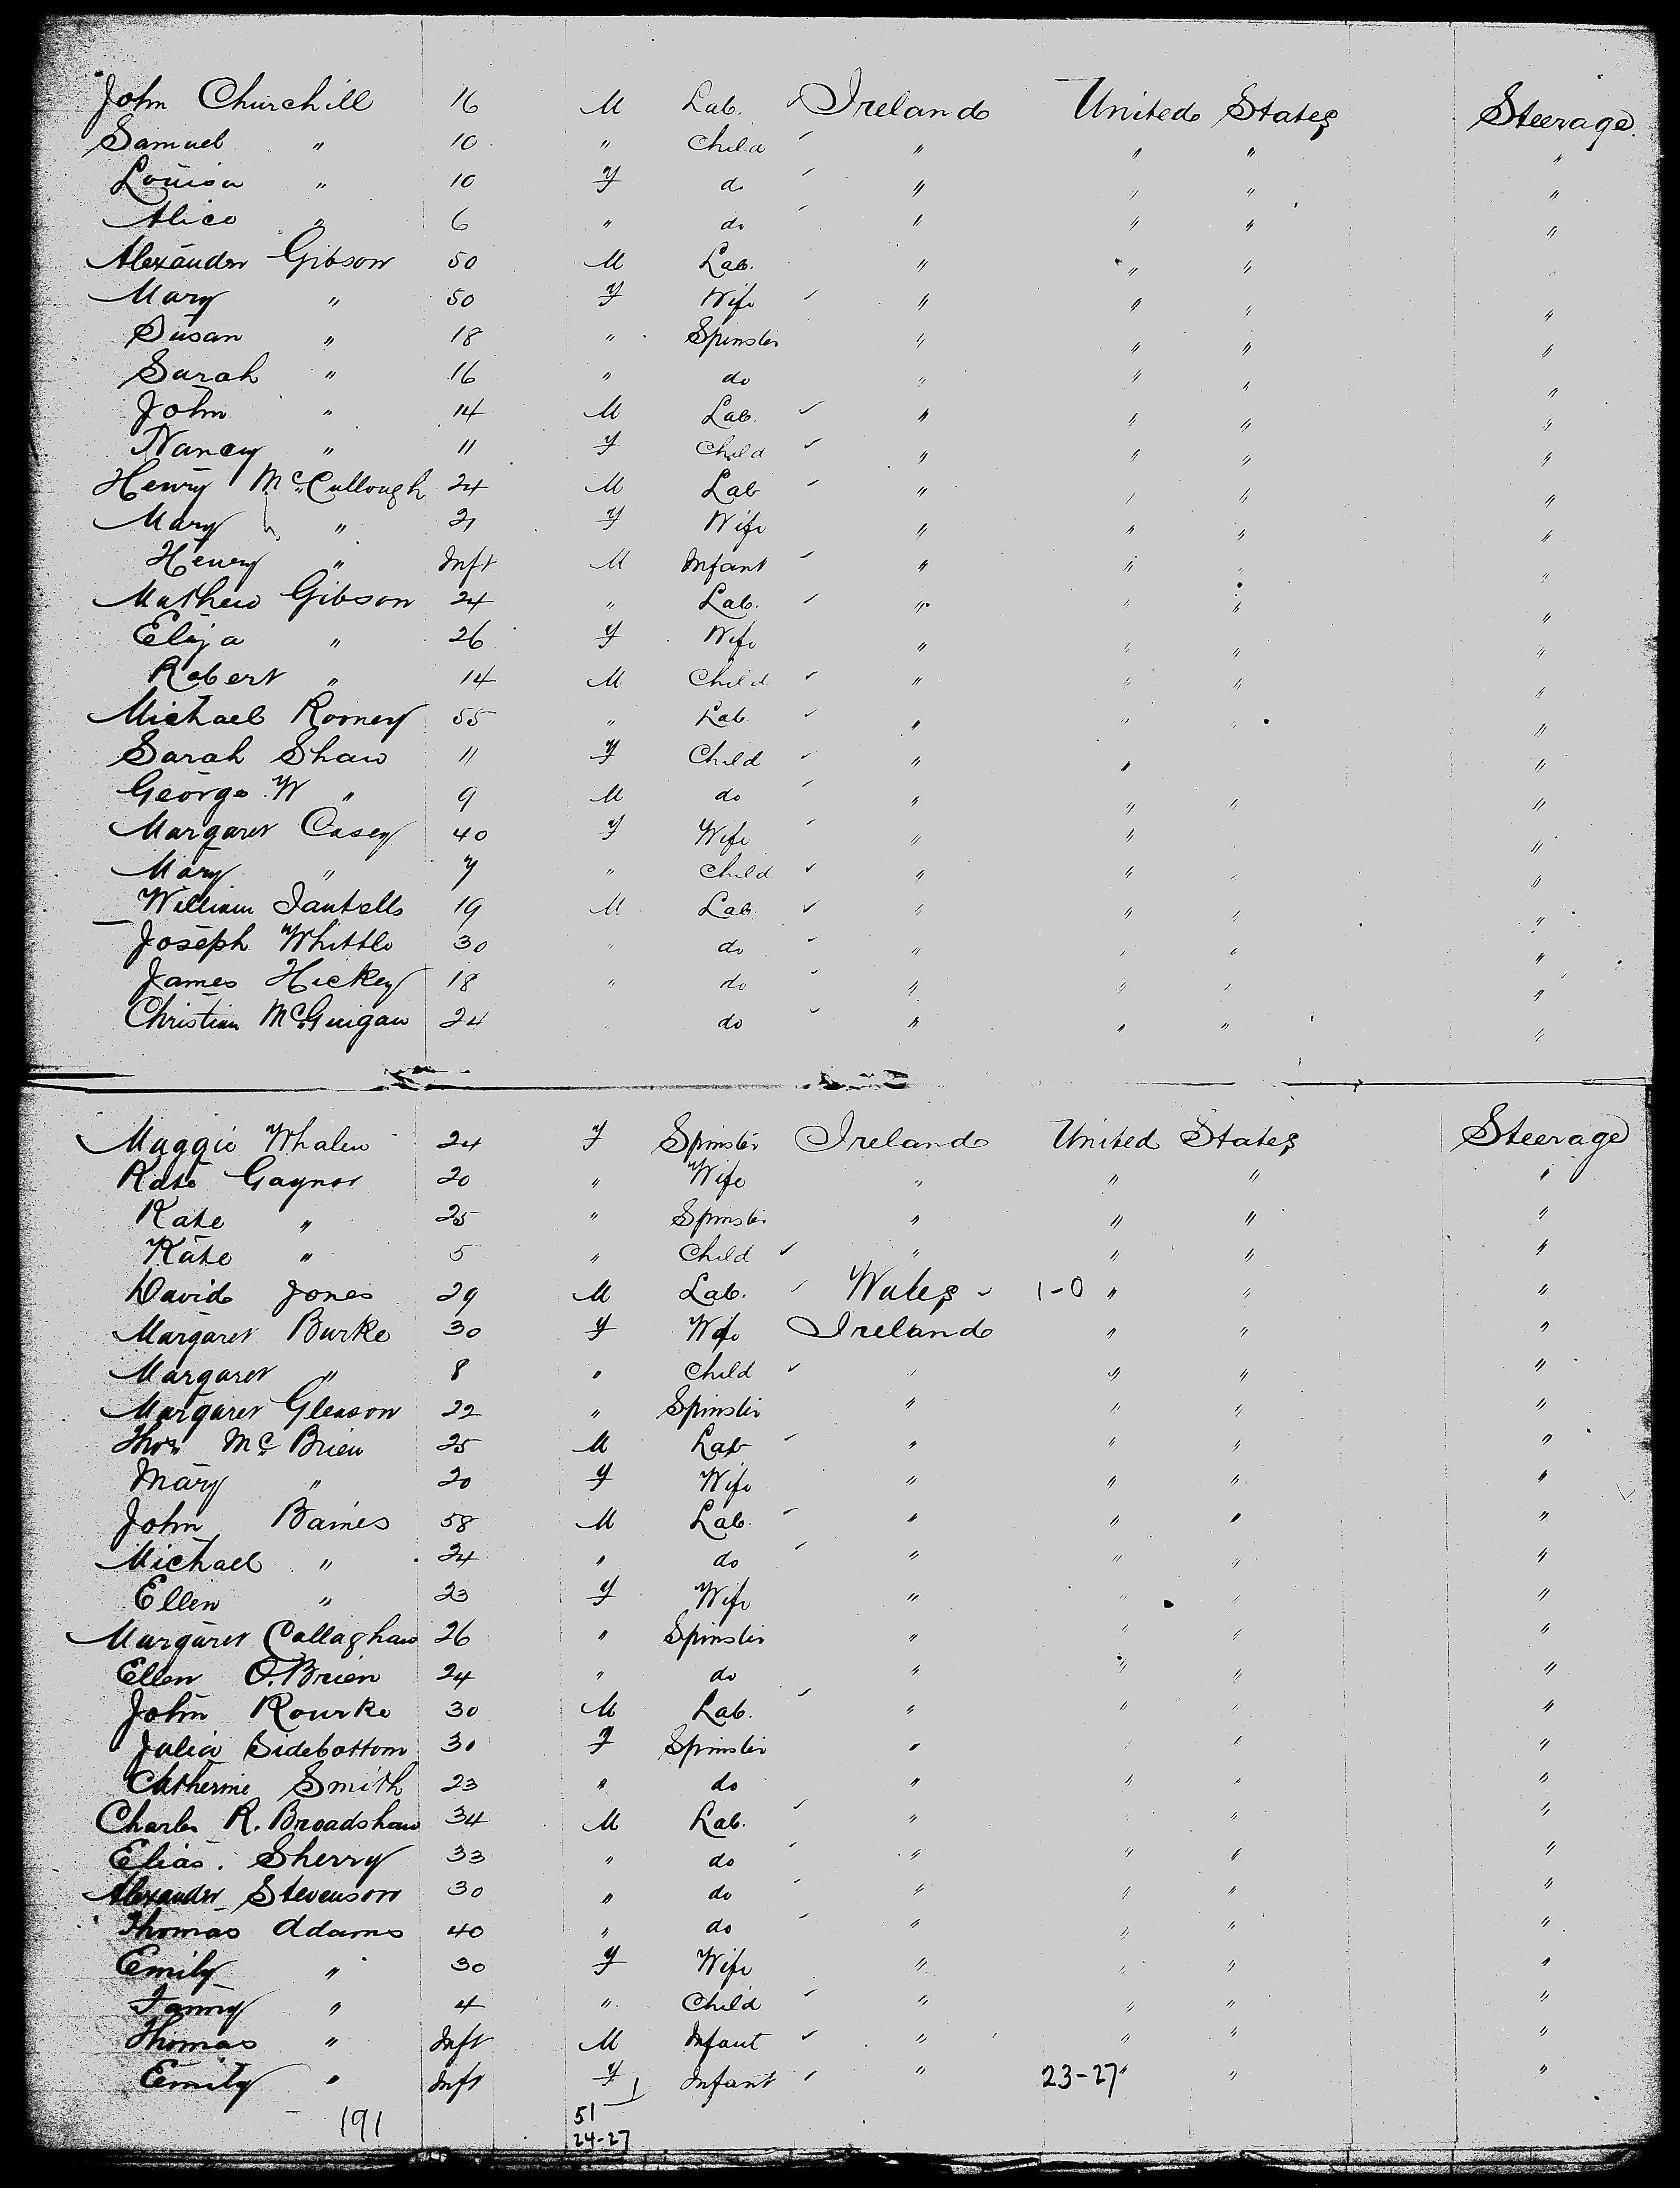 John Churchill 16 M Lab. Ireland United States Steerage
Samuel " 10 " Child " " " "
Louisa " 10 F do " " " "
Alice " 6 " do " " " "
Alexander Gibson 50 M Lab. " " "
Mary " 50 F Wife " " " "
Susan " 18 " Spinster " " " "
Sarah " 16 " do " " " "
John " 14 M Lab. " " " "
Nancy " 11 F Child " " " "
Henry McCullough 24 M Lab " " " "
Mary " 21 F Wife " " " "
Henry " Inft M Infant " " " "
Mathew Gibson 24 " Lab. " " " "
Eliza " 26 F Wife " " " "
Robert " 14 M Child " " " "
Michael Rooney 55 " Lab " " "
Sarah Shaw 11 F Child " " "
George W " 9 M do " " " "
Margaret Casey 40 F Wife " " "
Mary " 7 " Child " " " "
William 19 M Lab. " " " "
Joseph Whittle 30 " do " " " "
James Hickey 18 " do " " " "
Christian McGuigan 24 do " " " "
Maggie Whalen 24 F Spinster Ireland United States Steerage
Kate Gaynor 20 " Wife " " " "
Kate " 25 " Spinster " " " "
Kate " 5 " Child " " " "
David Jones 29 M Lab. Wales 1-0 " " "
Margaret Burke 30 F Wife Ireland " " "
Margaret " 8 " Child " " " "
Margaret Gleason 22 " Spinster " " " "
Thos McBrien 25 M Lab " " " "
Mary " 20 F Wife " " " "
John Baines 58 M Lab. " " " "
Michael " 24 " do " " " "
Ellen " 23 F Wife " " " "
Margaret Callaghan 26 " Spinster " " " "
Ellen O.Brien 24 " do " " " "
John Rourke 30 M Lab. " " " "
Julia Sidebottom 30 F Spinster " " " "
Catherine Smith 23 " do " " " "
Charles R. Broadshaw 34 M Lab. " " "
Elias. Sherry 33 " do " " " "
Alexander Stevenson 30 " do " " " "
Thomas Adams 40 " do " " " "
Emily " 30 F Wife " " " "
Fanny " 4 " Child " " " "
Thomas " Inft M Infant " " " "
Emily " Inft F Infant " 23-27 " " "
191 51 1
24-27